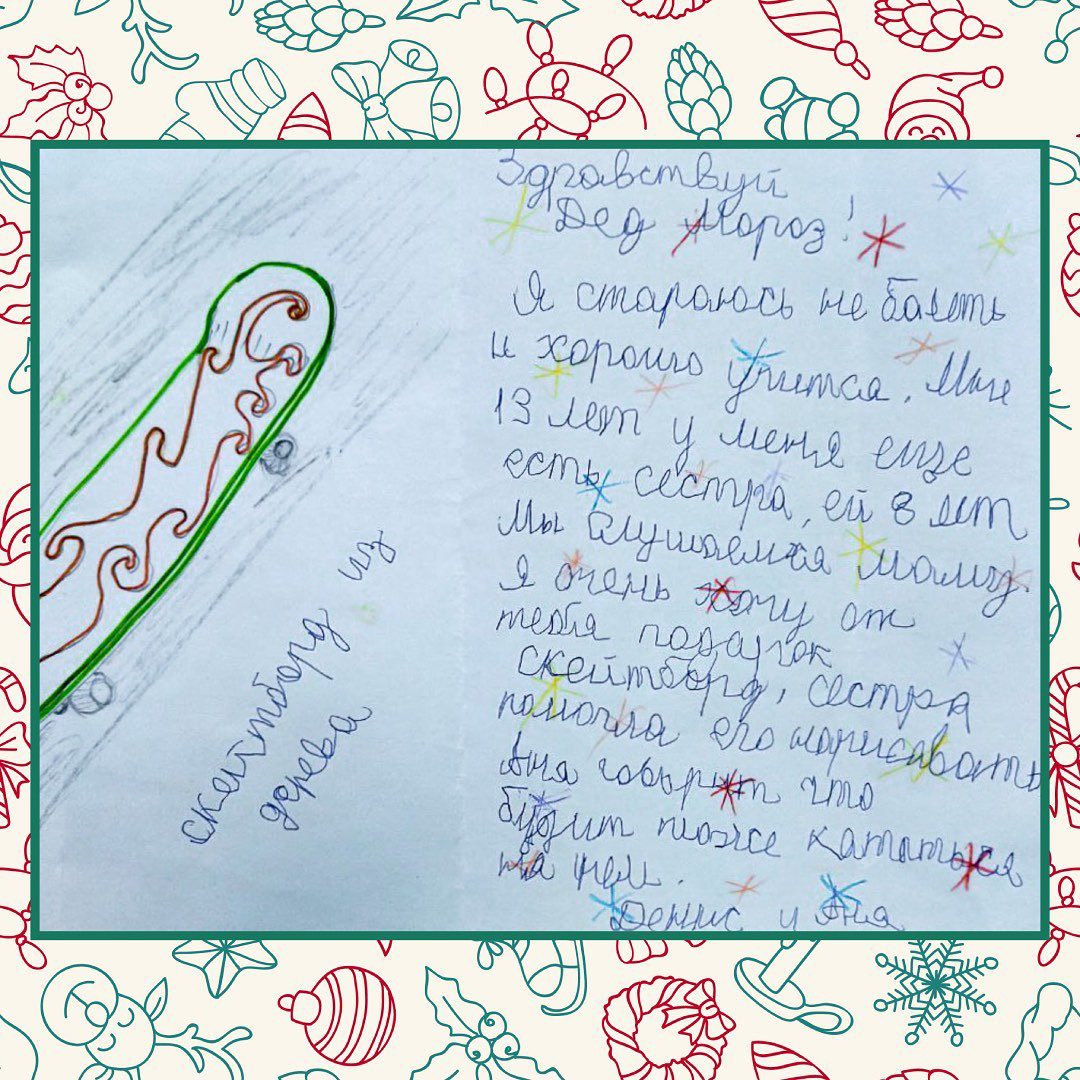 скейтборд из
дерева
Здравствуй
Дед Мороз!
Я стараюсь не балеть
и хорошо учится. Мне
13 лет у меня еще
есть сестра, ей 8 лет
Мы слушаемся маму.
Я очень хочу от
тебя подарок
скейтборд, сестра
помогла его нарисовать
Аня говорит что
будит тоже кататься
на нем.
Деннис и Аня